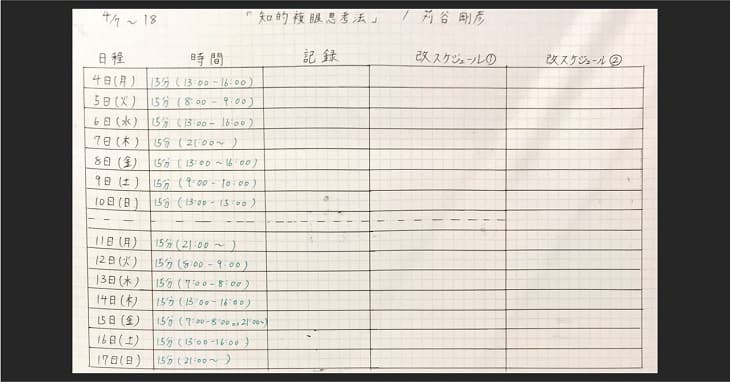 4/7〜18 「知的複眼思考法」 / 苅谷剛彦
日程 時間 記録 改スケジュール① 改スケジュール②
4日(月) 15分(13:00-16:00)
5日(火) 15分(8:00-9:00)
6日(水) 15分(13:00-16:00)
7日(木) 15分(21:00〜)
8日(金) 15分(13:00〜16:00)
9日(土) 15分(9:00-10:00)
10日(日) 15分(13:00-15:00)
11日(月) 15分(21:00〜)
12日(火) 15分(8:00-9:00)
13日(水) 15分(7:00-8:00)
14日(木) 15分(13:00-16:00)
15日(金) 15分(7:00-8:00 21:00〜)
16日(土) 15分(13:00-16:00)
17日(日) 15分(21:00〜)